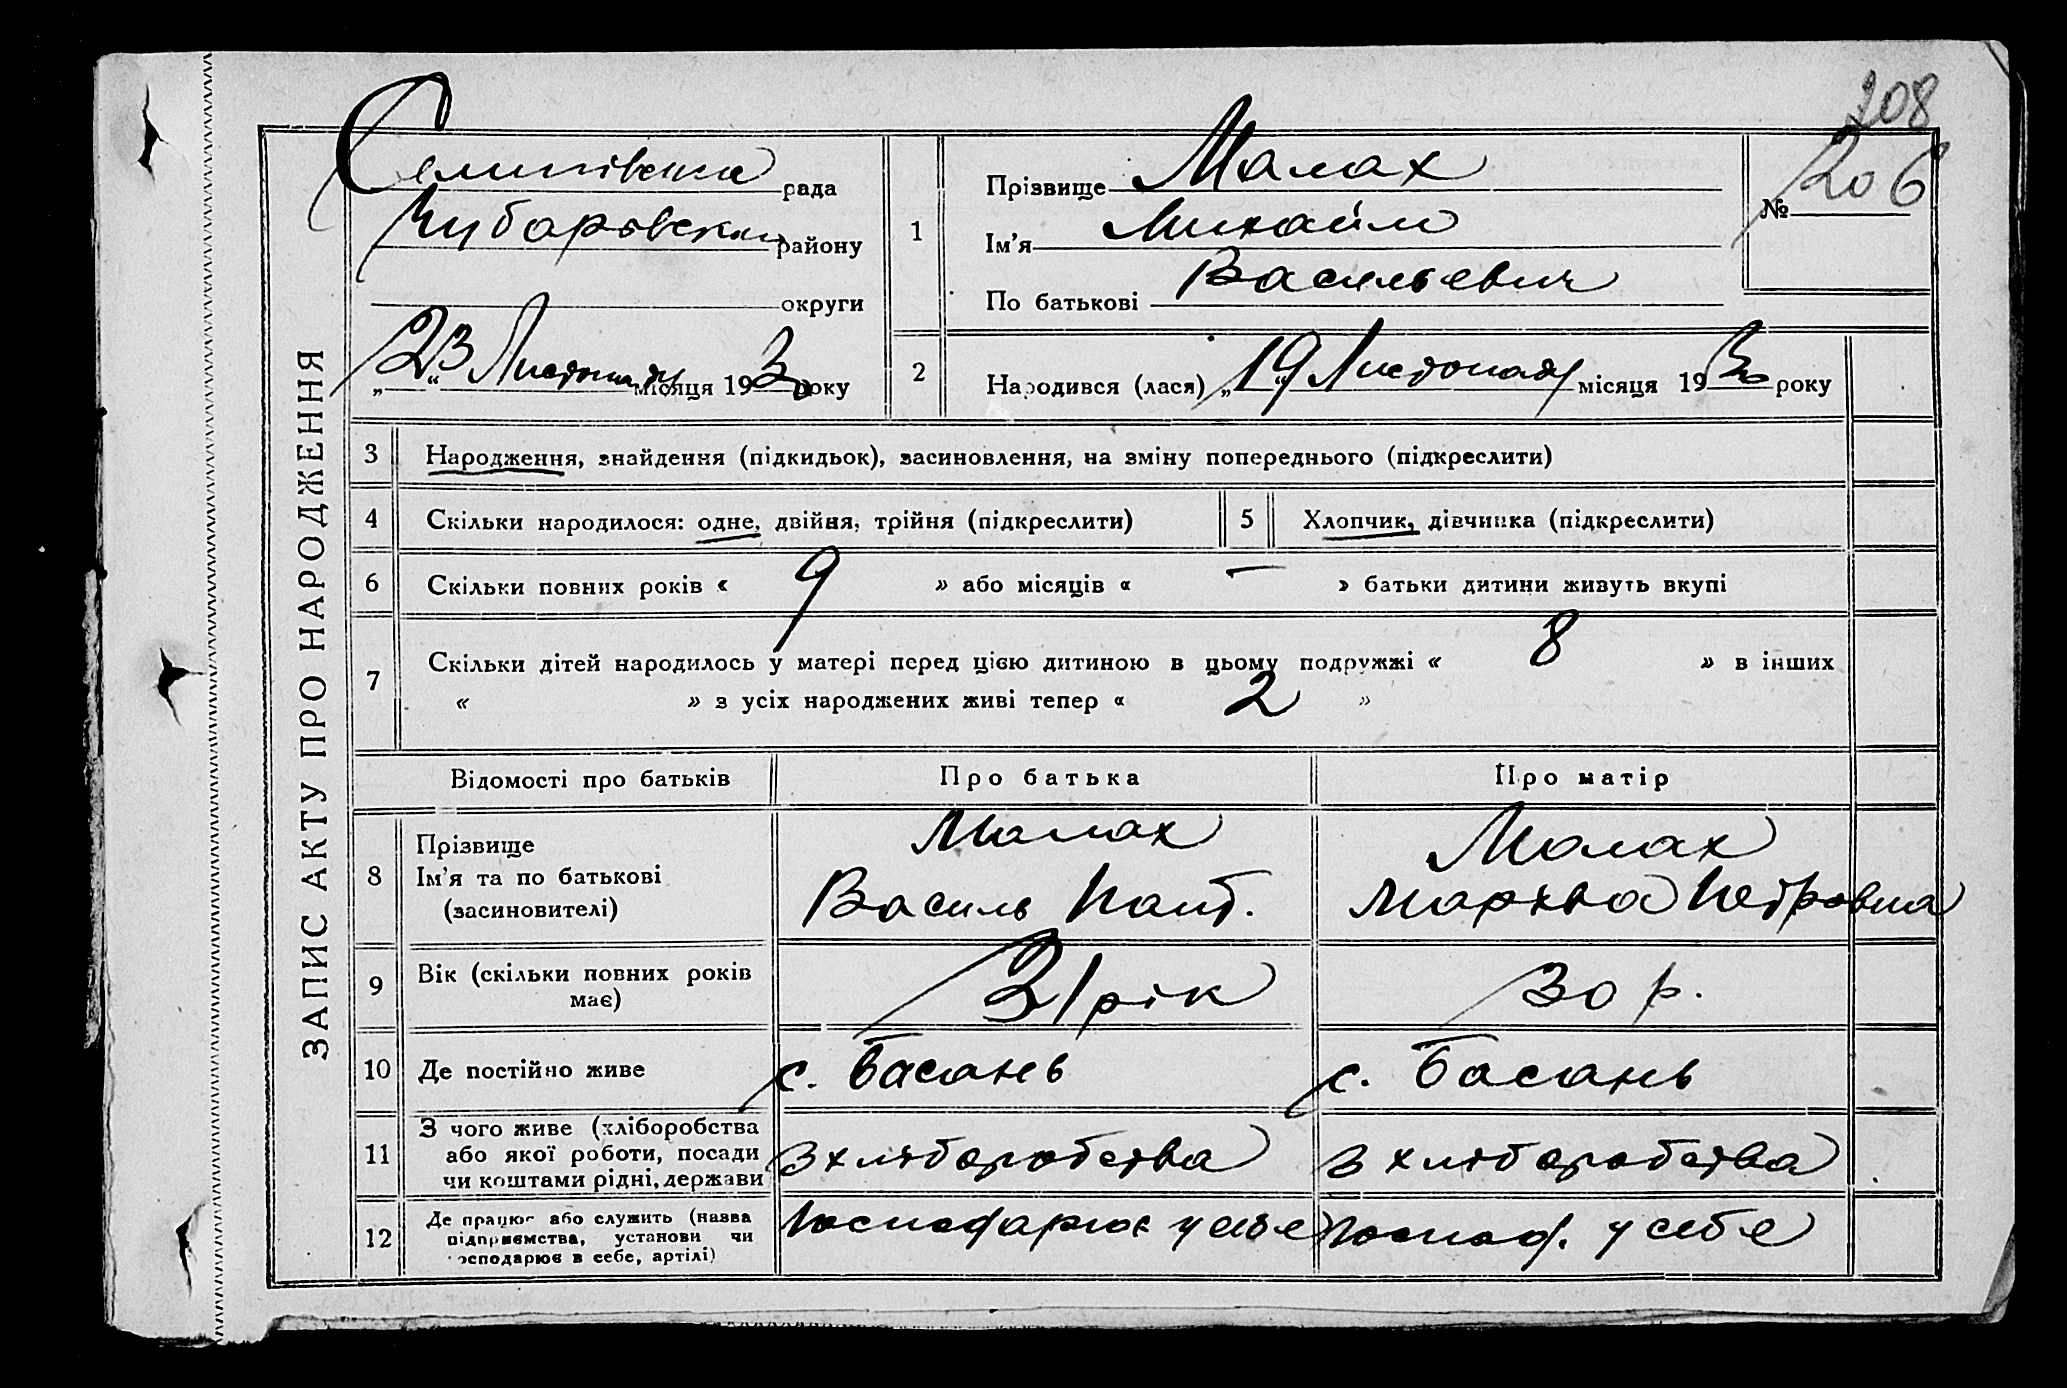 ЗАПИС АКТУ ПРО НАРОДЖЕННЯ
208
рада
Чубарівськ району
округи
„23“ Листопаду місяця 1930 року
1
Прізвище Малах
Ім'я Михайло
По батькові Васильевич
№ 206
2
Народився (лася) „19“ Листопаду місяця 1930 року
3
Народження, знайдення (підкидьок), засиновлення, на зміну попереднього (підкреслити)
4
Скільки народилося: одне, двійня, трійня (підкреслити)
5
Хлопчик, дівчинка (підкреслити)
6
Скільки повних років « 9 » або місяців « — » батьки дитини живуть вкупі
7
Скільки дітей народилось у матері перед цією дитиною в цьому подружжі « 8 » в інших
« » з усіх народжених живі тепер « 2 »
Відомості про батьків
Про батька
Про матір
8
Прізвище
Ім'я та по батькові
(засиновителі)
Малах
Василь Пант.
Малах
Мархва Петровна
9
Вік (скільки повних років
має)
31 рік
30 р.
10
Де постійно живе
с. Басань
с. Басань
11
З чого живе (хліборобства
або якої роботи, посади
чи коштами рідні, держави
З хліборобства
З хліборобства
12
Де працює або служить (назва
підприємства, установи чи
господарює в себе, артілі)
Господарює у себе
Господ. у себе